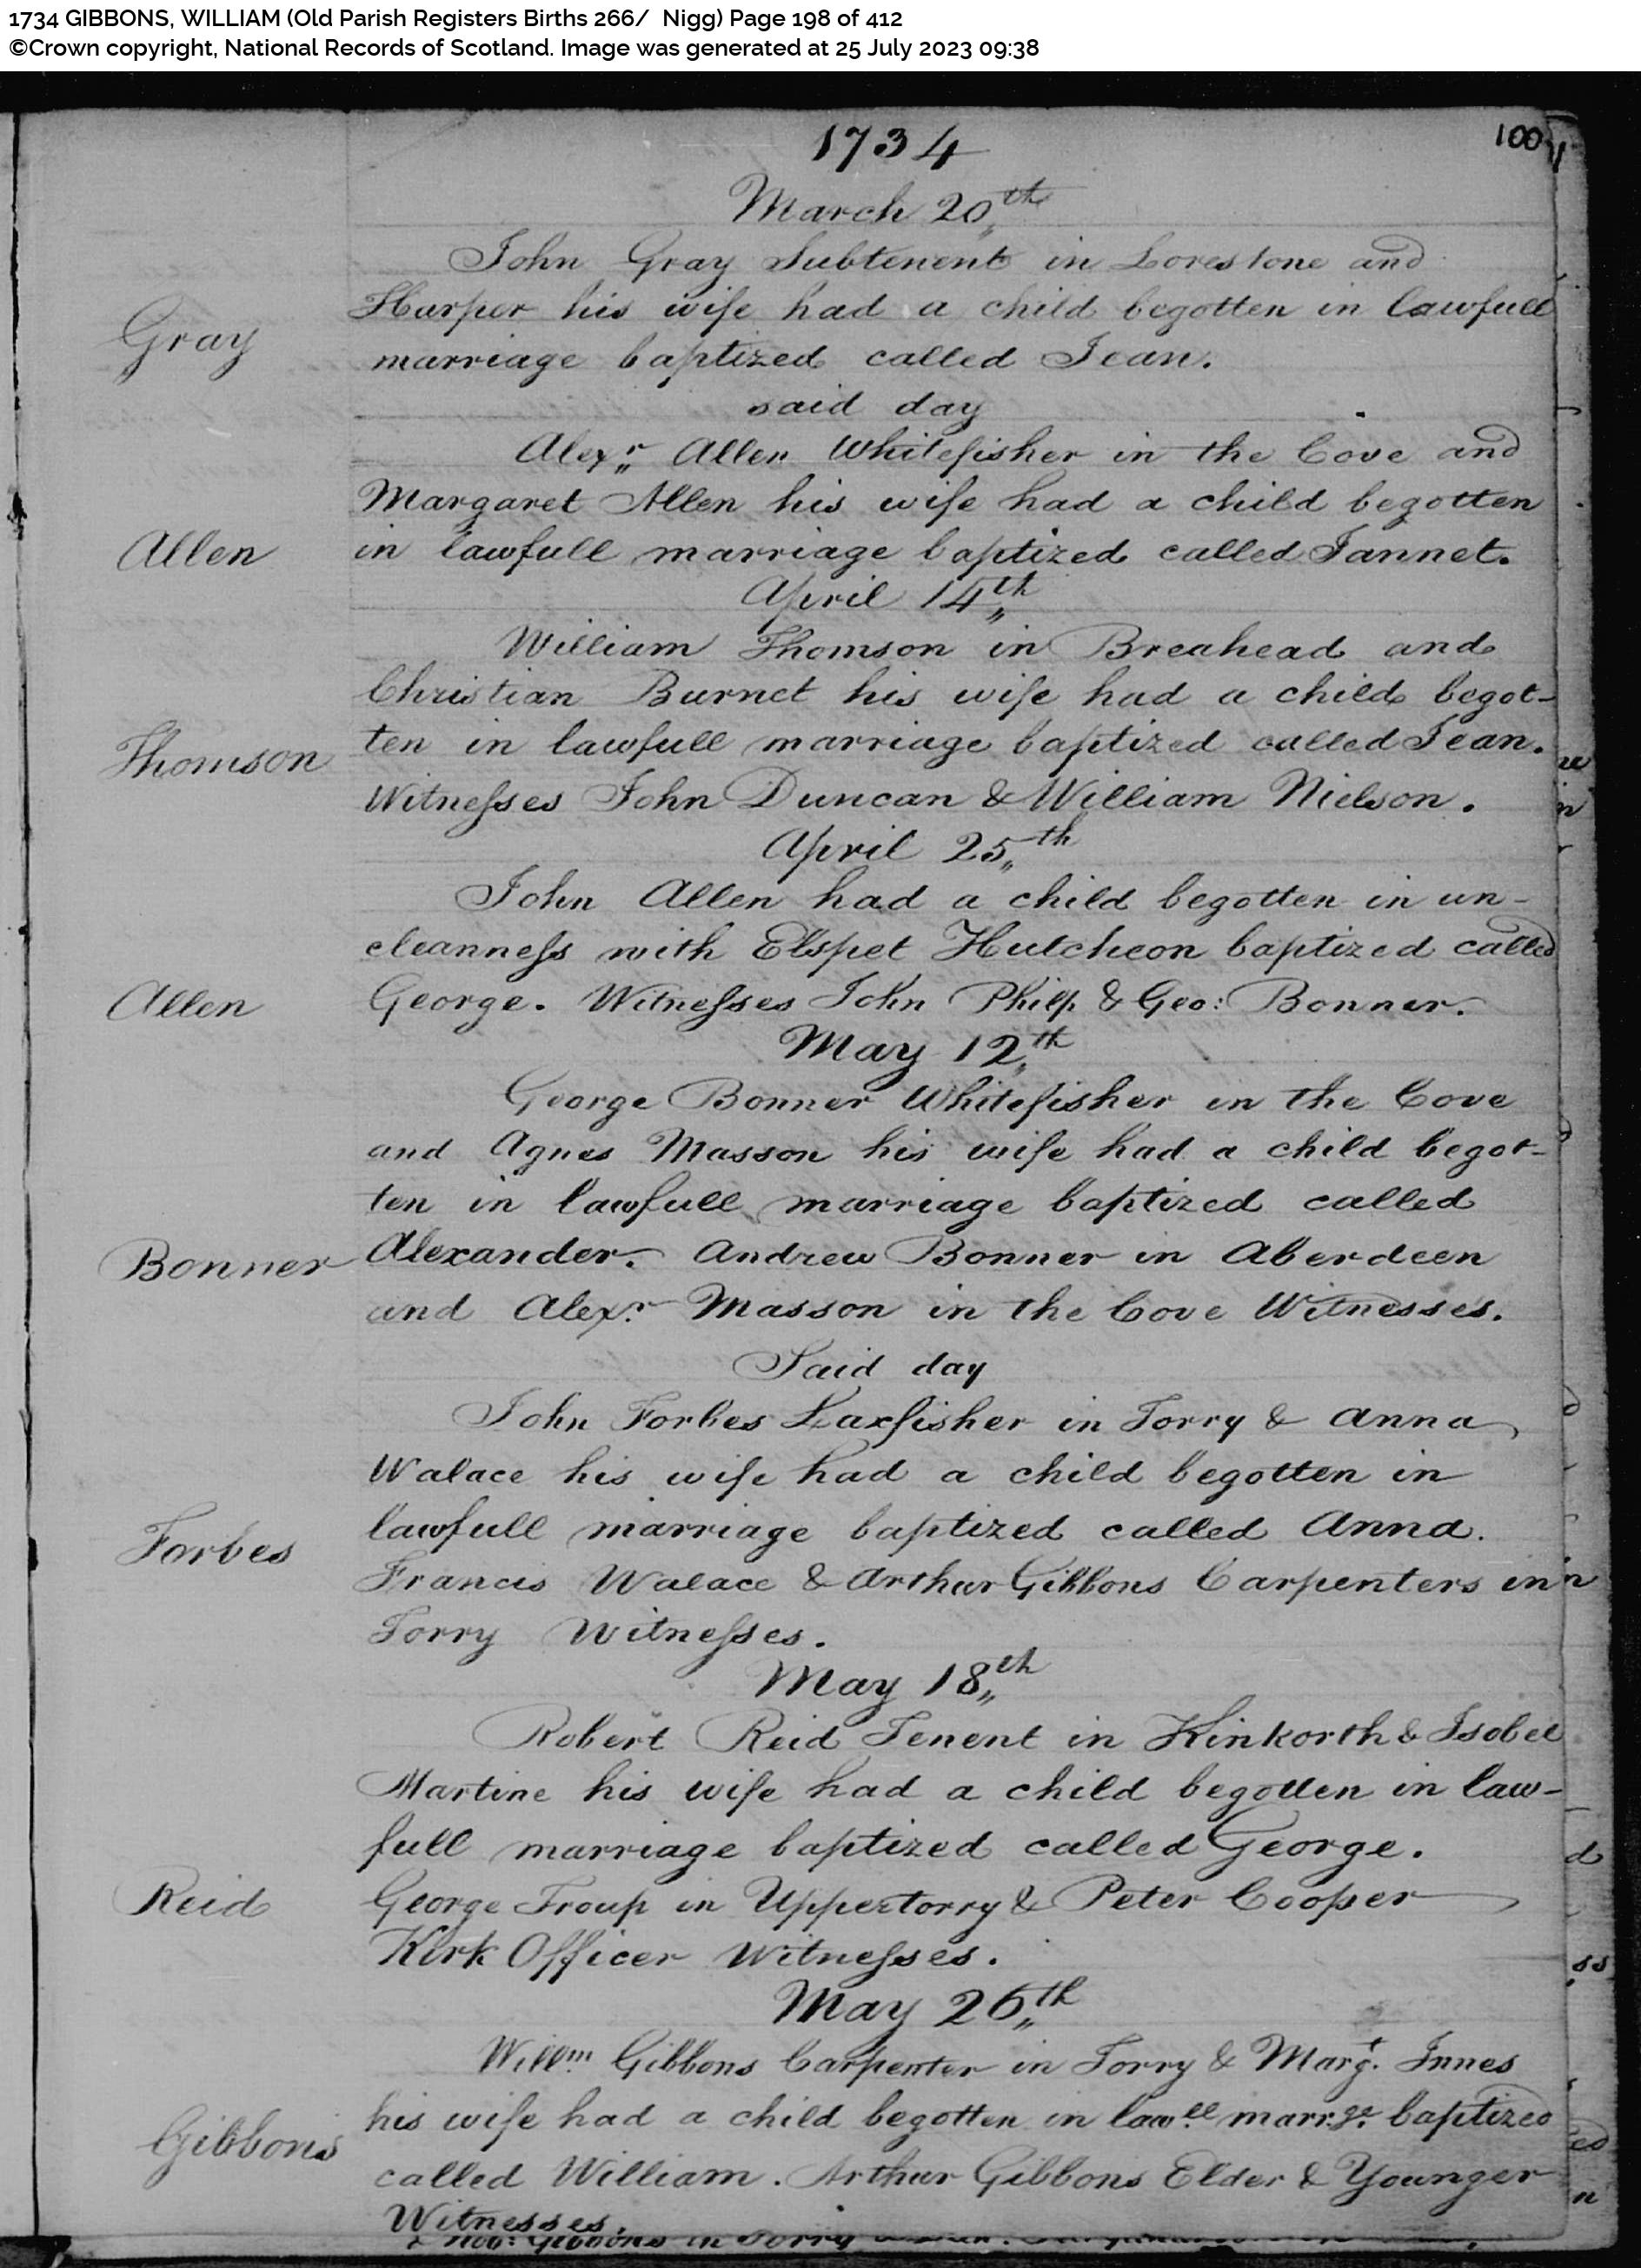 1734 GIBBONS, WILLIAM (Old Parish Registers Births 266/ Nigg) Page 198 of 412
©Crown copyright, National Records of Scotland. Image was generated at 25 July 2023 09:38
1734
100
March 20th
John Gray Subtenent in Lorestone and
Gray
Harper his wife had a child begotten in lawfull
marriage baptized called Jean.
said day
Alexr Allen Whitefisher in the Cove and
Margaret Allen his wife had a child begotten
Allen
in lawfull marriage baptized called Jannet.
April 14th
William Thomson in Breahead and
Christian Burnet his wife had a child begot-
Thomson
ten in lawfull marriage baptized called Jean.
Witnesses John Duncan & William Nielson.
April 25th
John Allen had a child begotten in un-
cleanness with Elspet Hutcheon baptized called
Allen
George. Witnesses John Philp & Geo: Bonner.
May 12th
George Bonner Whitefisher in the Cove
and Agnes Masson his wife had a child begot-
ten in lawfull marriage baptized called
Bonner
Alexander. Andrew Bonner in Aberdeen
and Alexr Masson in the Cove Witnesses.
Said day
John Forbes Laxfisher in Torry & Anna
Walace his wife had a child begotten in
Forbes
lawfull marriage baptized called Anna.
Francis Walace & Arthur Gibbons Carpenters in
Torry Witnesses.
May 18th
Robert Reid Tenent in Kinkorth & Isobel
Martine his wife had a child begotten in law-
full marriage baptized called George.
Reid
George Troup in Uppertorry & Peter Cooper
Kirk Officer Witnesses.
May 26th
Willm Gibbons Carpenter in Torry & Margt. Innes
his wife had a child begotten in lawll marrge baptized
Gibbons
called William. Arthur Gibbons Elder & Younger
Witnesses.
Gibbons in Torry